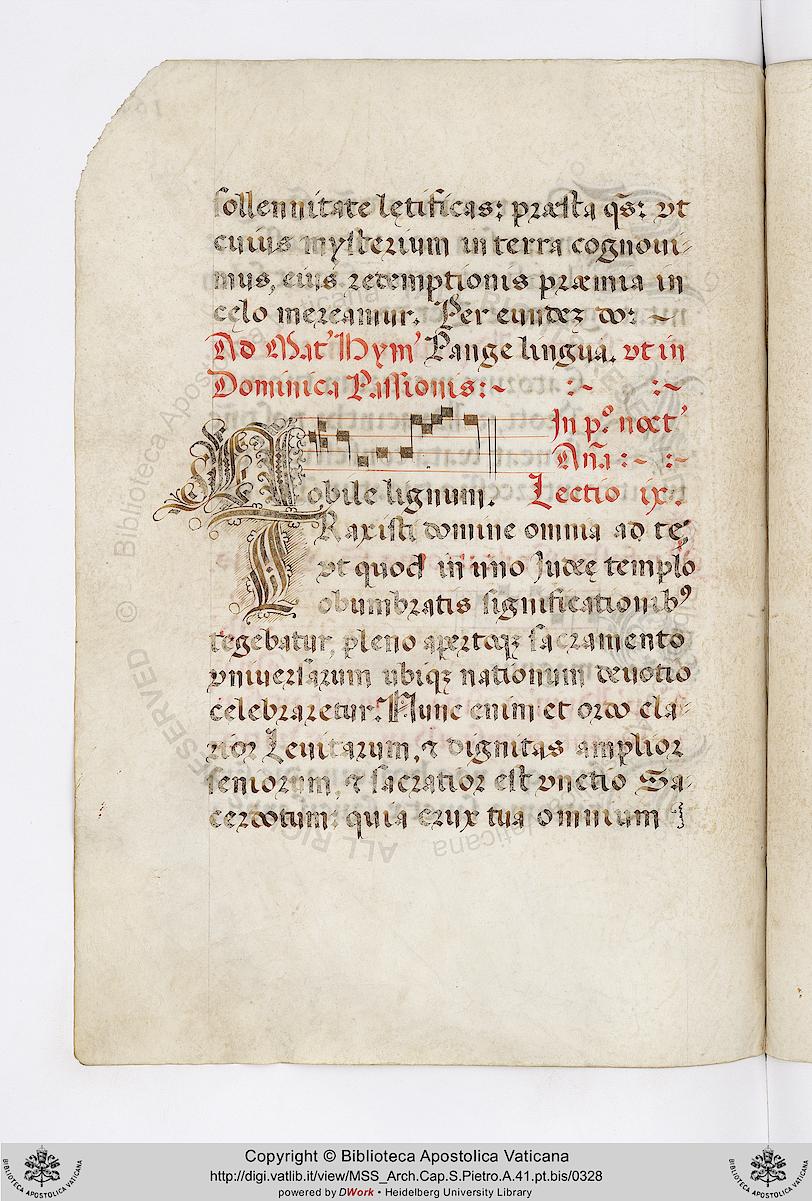 sollennitate letificas: præsta qs: vt
cuius mysterium in terra cognoui-
mus, eius redemptionis præmia in
celo mereamur. Per eundez do:
Ad Mat' Hym' Pange lingua. vt in
Dominica Passionis:~ :~ :~
In p.º noct'
Aña :~ :~
Nobile lignum. Lectio ix.
TRaxisti domine omnia ad te,
vt quod in uno Judeę templo
obumbratis significationibꝰ
tegebatur, pleno apertoqꝫ sacramento
vniuersarum ubiqꝫ nationum deuotio
celebraretur. Nunc enim et ordo cla-
rior Leuitarum, ⁊ dignitas amplior
seniorum, ⁊ sacratior est vnctio Sa-
cerdotum: quia crux tua omnium
© Biblioteca Apostolica Vaticana
ALL RIGHTS RESERVED
Copyright © Biblioteca Apostolica Vaticana
http://digi.vatlib.it/view/MSS_Arch.Cap.S.Pietro.A.41.pt.bis/0328
powered by DWork • Heidelberg University Library
BIBLIOTECA APOSTOLICA VATICANA
BIBLIOTECA APOSTOLICA VATICANA